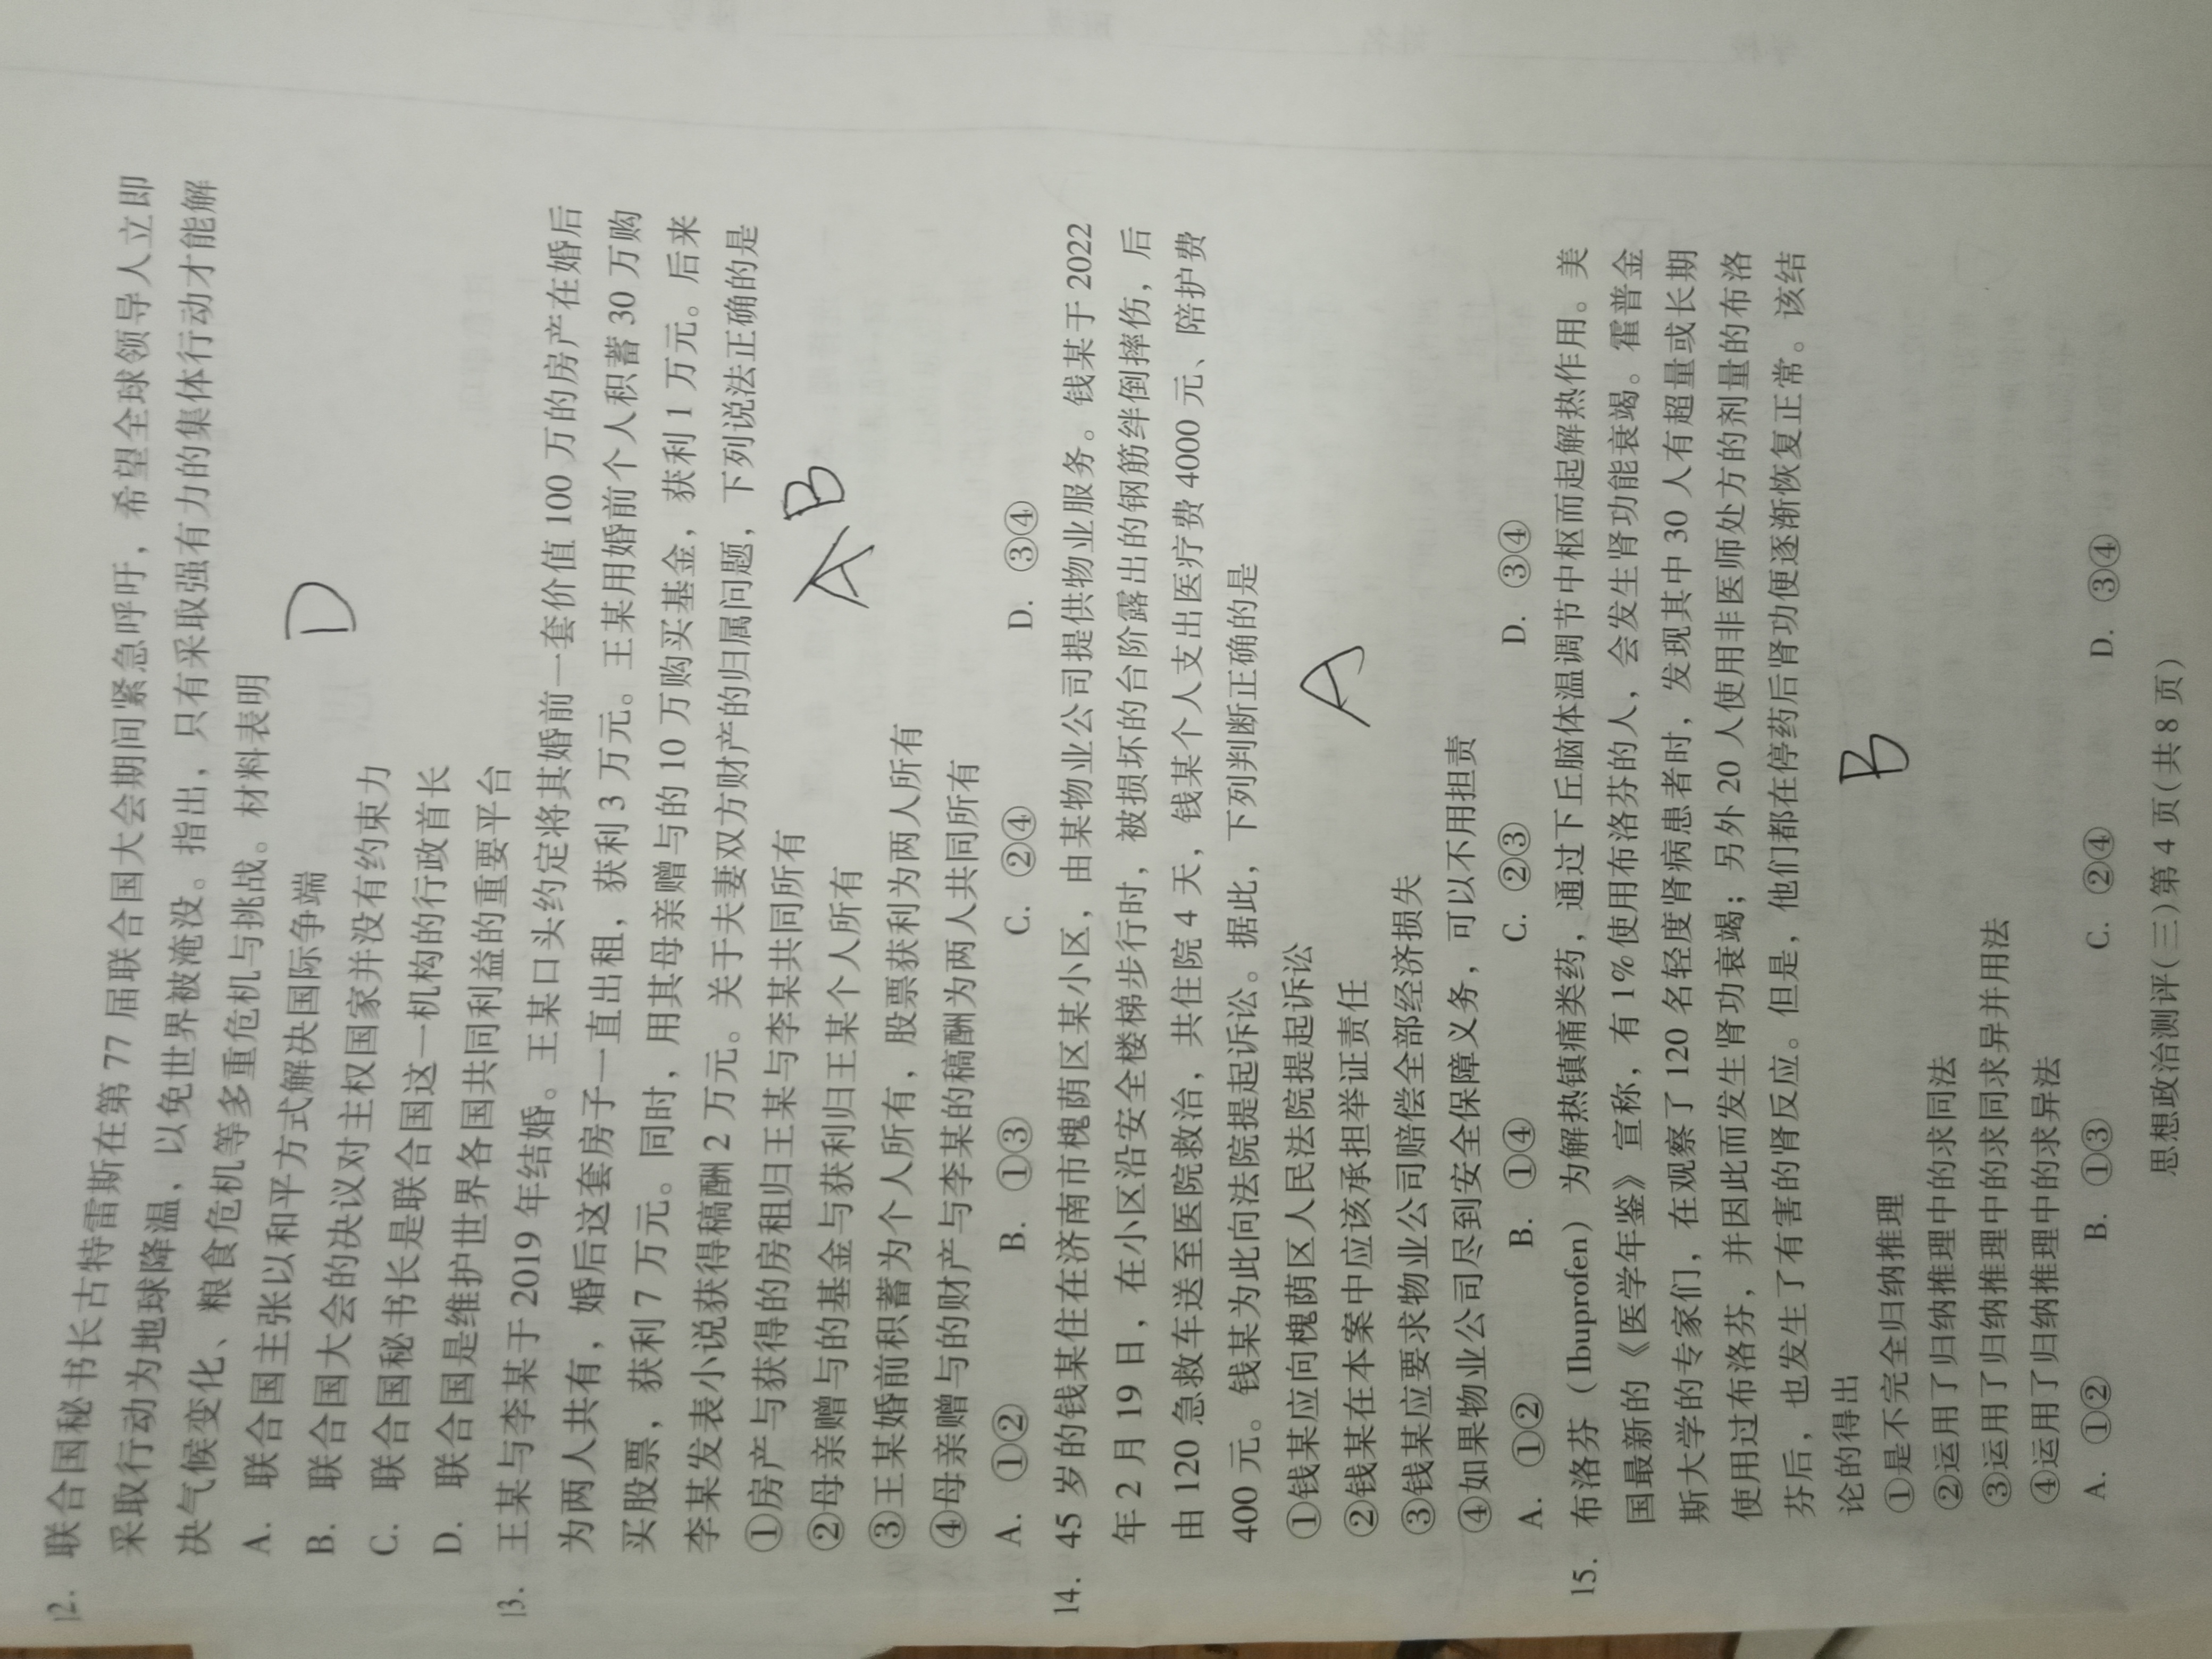 12. 联合国秘书长古特雷斯在第 77 届联合国大会期间紧急呼吁，希望全球领导人立即
采取行动为地球降温，以免世界被淹没。指出，只有采取强有力的集体行动才能解
决气候变化、粮食危机等多重危机与挑战。材料表明
A. 联合国主张以和平方式解决国际争端
D
B. 联合国大会的决议对主权国家并没有约束力
C. 联合国秘书长是联合国这一机构的行政首长
D. 联合国是维护世界各国共同利益的重要平台
13. 王某与李某于 2019 年结婚。王某口头约定将其婚前一套价值 100 万的房产在婚后
为两人共有，婚后这套房子一直出租，获利 3 万元。王某用婚前个人积蓄 30 万购
买股票，获利 7 万元。同时，用其母亲赠与的 10 万购买基金，获利 1 万元。后来
李某发表小说获得稿酬 2 万元。关于夫妻双方财产的归属问题，下列说法正确的是
①房产与获得的房租归王某与李某共同所有
A B
②母亲赠与的基金与获利归王某个人所有
③王某婚前积蓄为个人所有，股票获利为两人所有
④母亲赠与的财产与李某的稿酬为两人共同所有
A. ①② B. ①③ C. ②④ D. ③④
14. 45 岁的钱某住在济南市槐荫区某小区，由某物业公司提供物业服务。钱某于 2022
年 2 月 19 日，在小区沿安全楼梯步行时，被损坏的台阶露出的钢筋绊倒摔伤，后
由 120 急救车送至医院救治，共住院 4 天，钱某个人支出医疗费 4000 元、陪护费
400 元。钱某为此向法院提起诉讼。据此，下列判断正确的是
①钱某应向槐荫区人民法院提起诉讼
A
②钱某在本案中应该承担举证责任
③钱某应要求物业公司赔偿全部经济损失
④如果物业公司尽到安全保障义务，可以不用担责
A. ①② B. ①④ C. ②③ D. ③④
15. 布洛芬（Ibuprofen）为解热镇痛类药，通过下丘脑体温调节中枢而起解热作用。美
国最新的《医学年鉴》宣称，有 1%使用布洛芬的人，会发生肾功能衰竭。霍普金
斯大学的专家们，在观察了 120 名轻度肾病患者时，发现其中 30 人有超量或长期
使用过布洛芬，并因此而发生肾功衰竭；另外 20 人使用非医师处方的剂量的布洛
芬后，也发生了有害的肾反应。但是，他们都在停药后肾功便逐渐恢复正常。该结
论的得出
B
①是不完全归纳推理
②运用了归纳推理中的求同法
③运用了归纳推理中的求同求异并用法
④运用了归纳推理中的求异法
A. ①② B. ①③ C. ②④ D. ③④
思想政治测评(三)第 4 页(共 8 页)